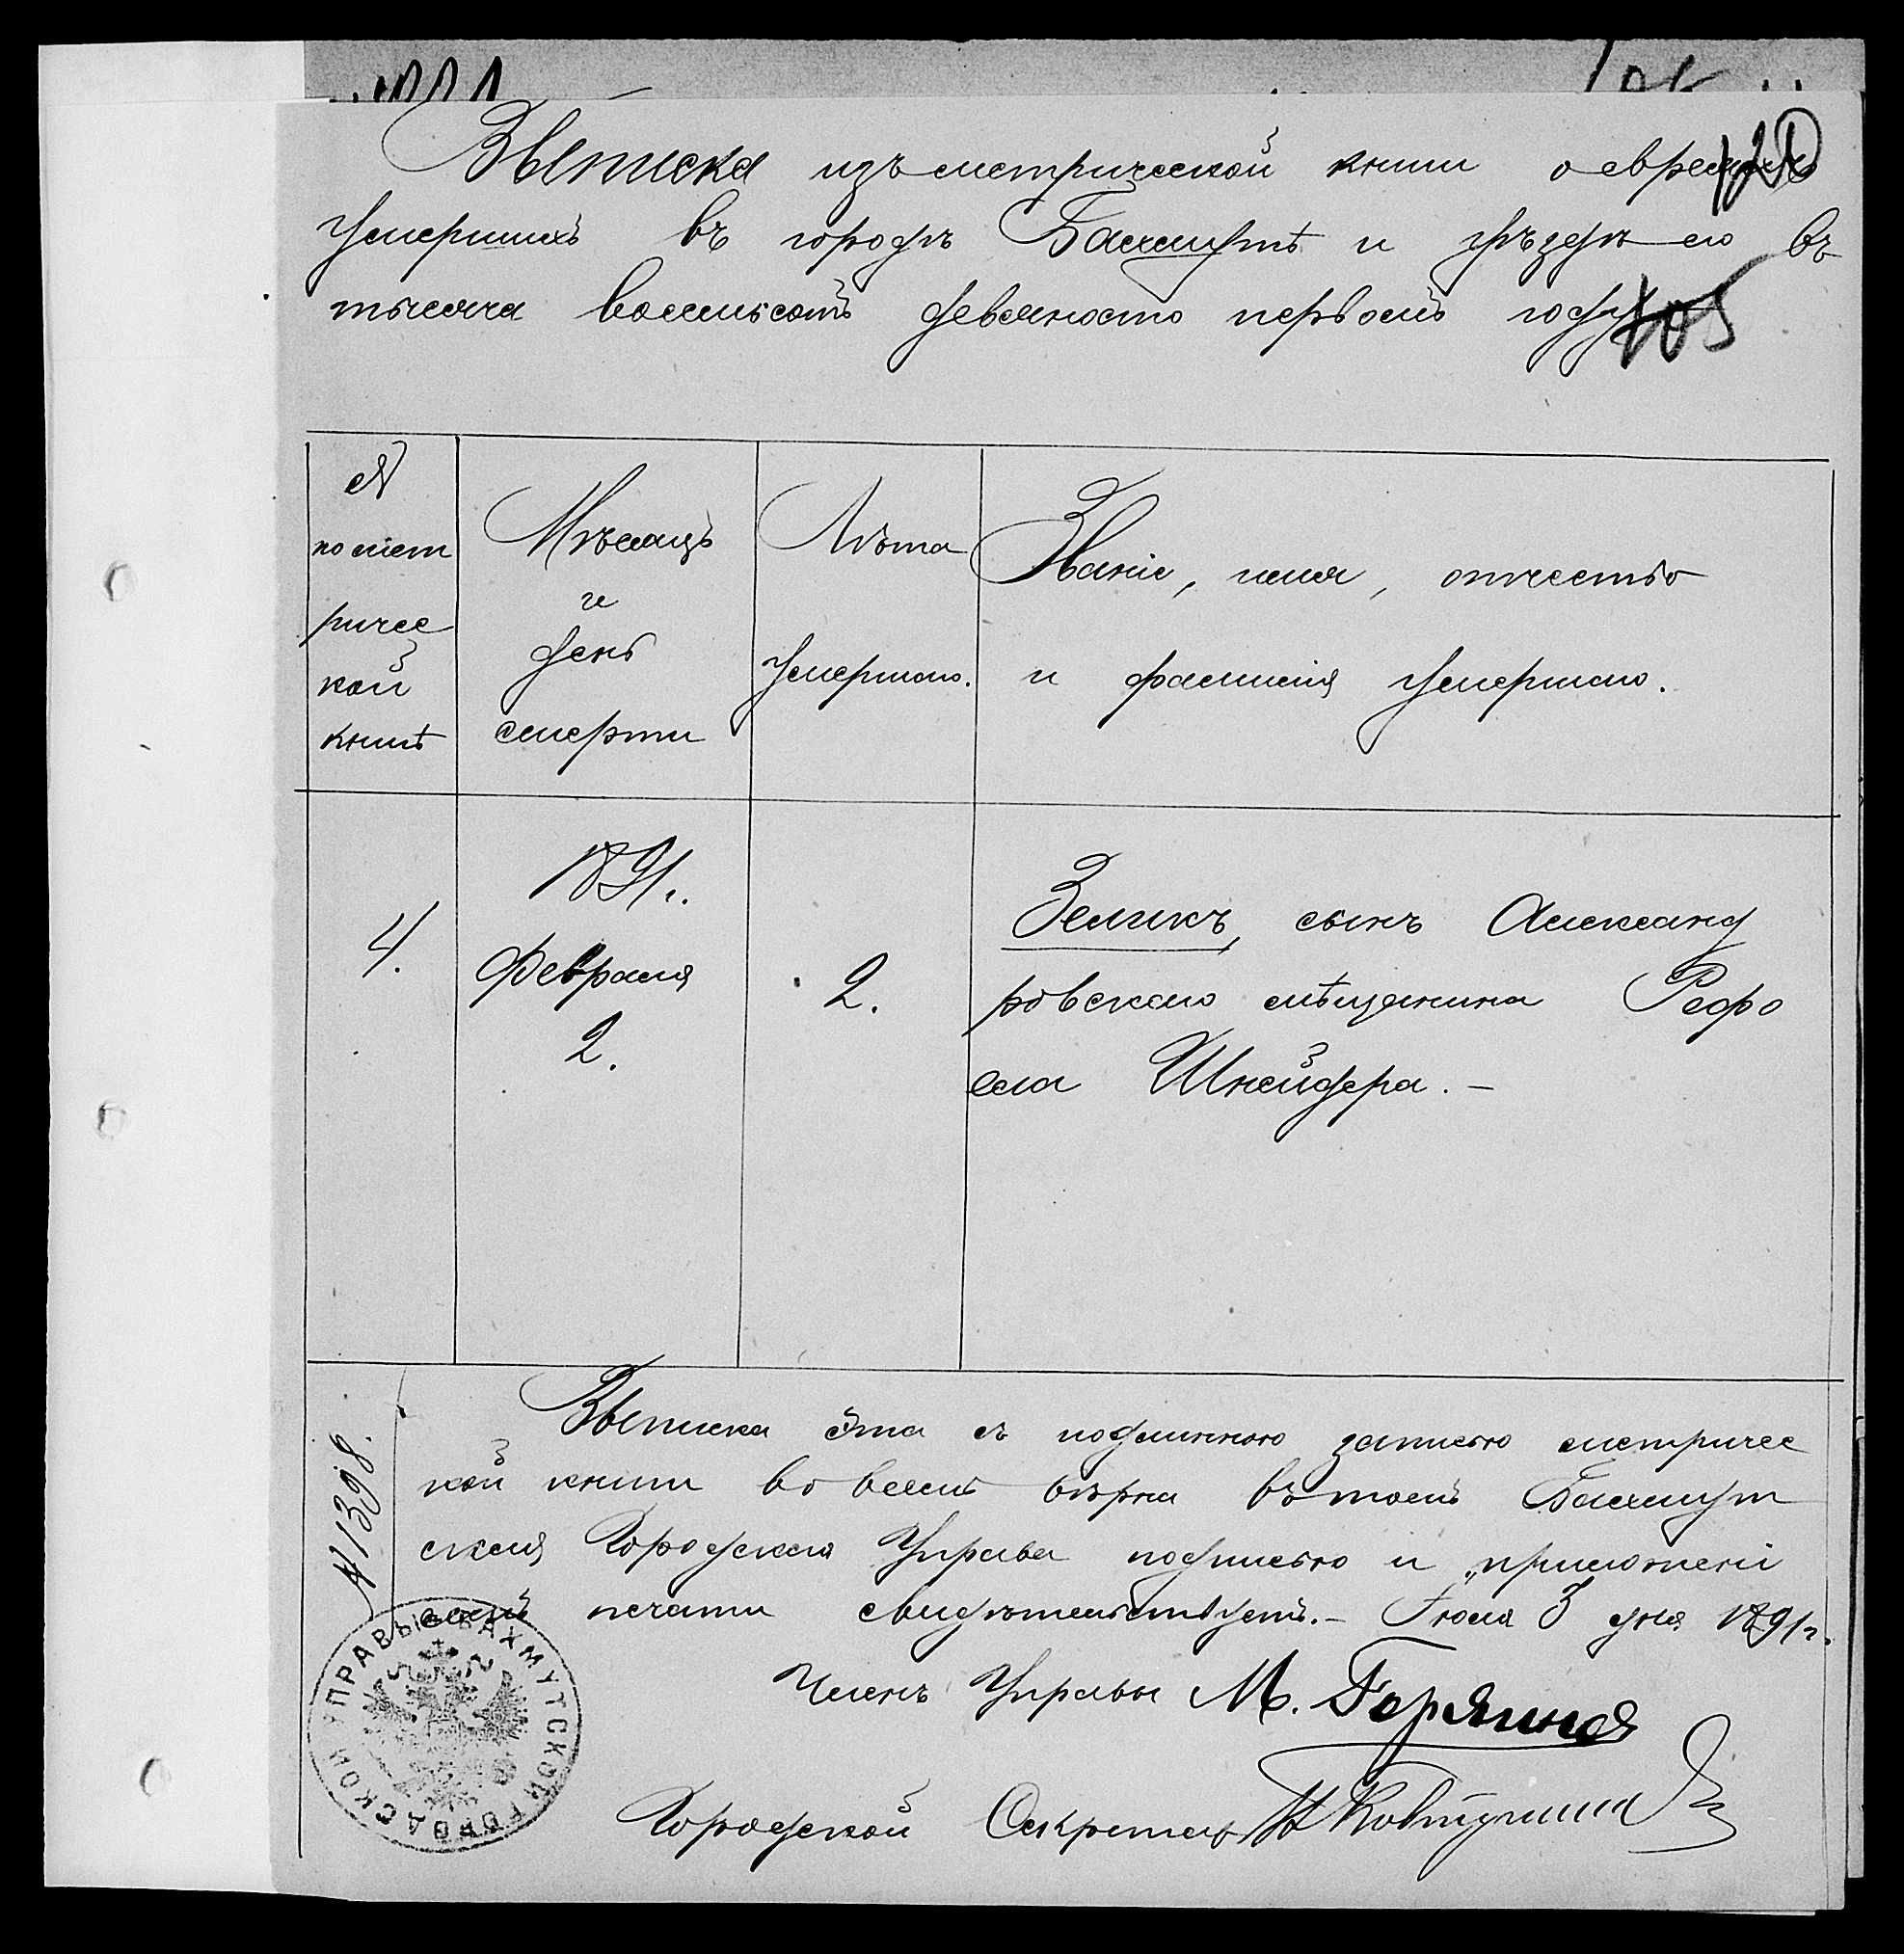 Выписка изъ метрической книги о евреяхъ
Умершихъ въ городѣ Бахмутѣ и уѣздѣ его въ
тысяча восемьсотъ девяносто первомъ году
105
№
по мет
риче­с
кой
книгѣ
Мѣсяцъ
и
день
смерти
Лѣта
Умершаго.
Званіе, имя, отчество
и фамилія Умершаго.
4.
1891г.
Февраля
2.
2.
Зеликъ, сынъ Александ
ровскаго мѣщанина Рафо
ела Шнейдера.-
№ 1398.
Выписка эта съ подлинною записью метричес
кой книги во всемъ вѣрна въ томъ Бахмут
ская Городская Управа подписью и приложені
емъ печати свидѣтельствуетъ.- Іюля 3 дня 1891г.
Членъ Управы М.
Городской Секретарь
БАХМУТСКОЙ ГОРОДСКОЙ УПРАВЫ